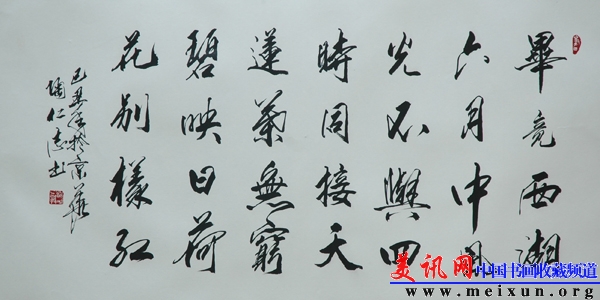 畢竟西湖
六月中風
光不與四
時同接天
蓮葉無窮
碧映日荷
花別樣紅
己丑年於京華
陶仁志书
美讯网 中国书画收藏频道
www.meixun.org